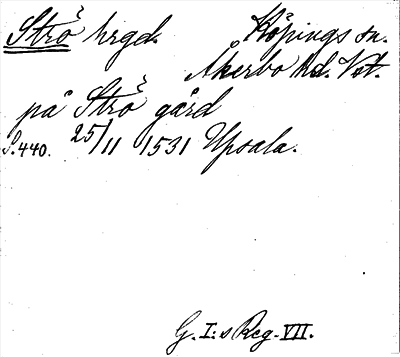 Strö hrgd. Köpings sn.
Åkerbo hd. Vst.
på Strö gård
S. 440. 25/11 1531 Upsala.
G. I:s Reg. VII.